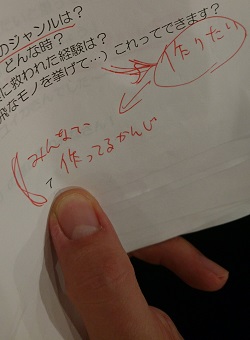 のジャンルは?
どんな時?
に救われた経験は?
飛なモノを挙げて…)これってできます?
作りたい
みんなで、
作ってるかんじ